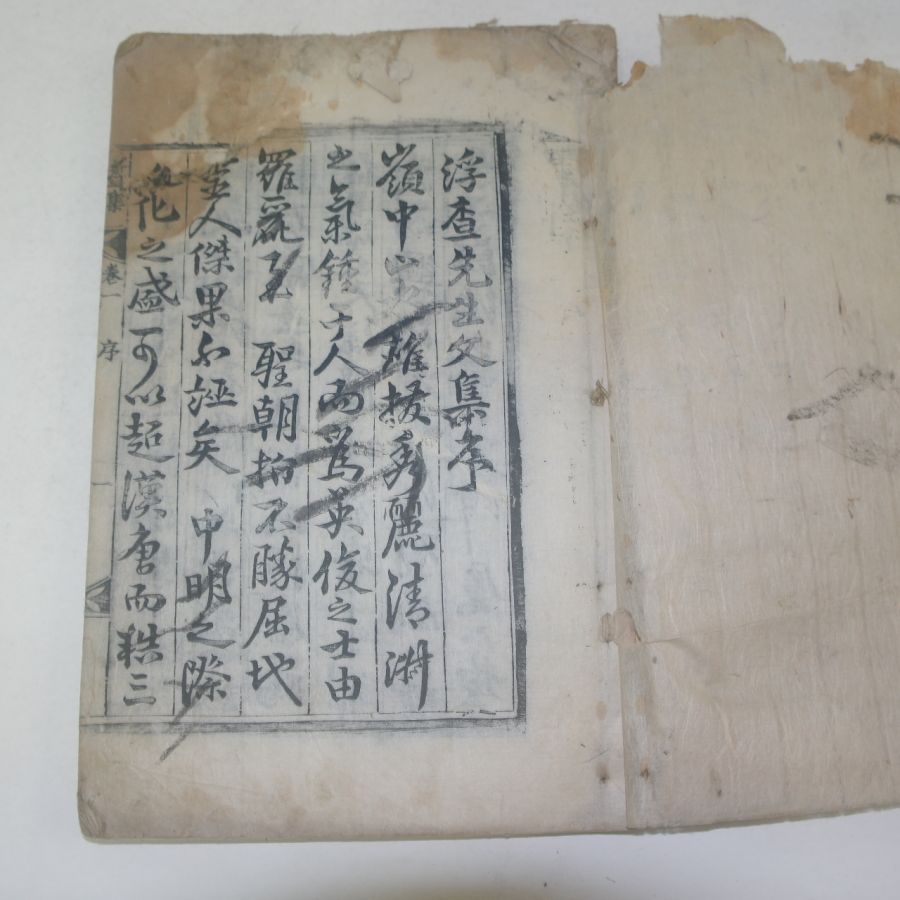 浮查先生文集序
嶺中山 雄拔秀麗清淑
之氣鍾于人而爲英俊之士由
羅麗至 聖朝指不勝屈地
靈人傑果不誣矣 中明之際
文化之盛可以超漢唐而軼三
集 卷一 序 一